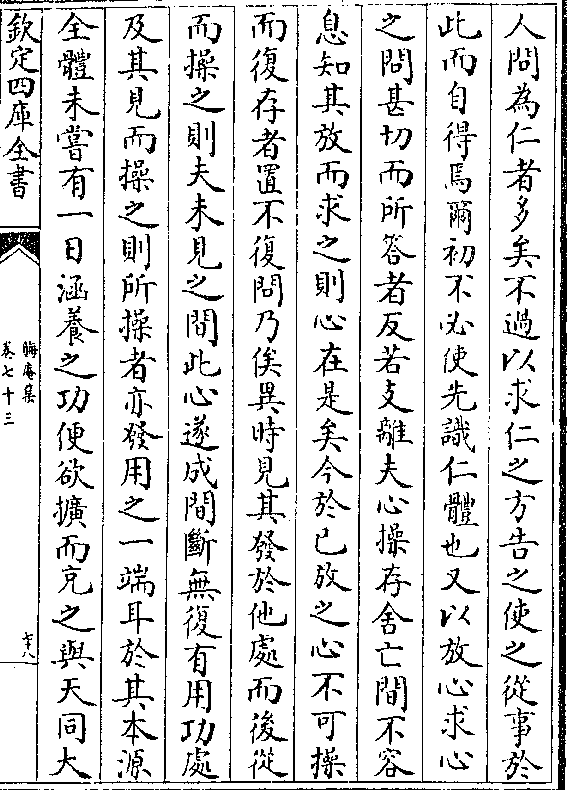 人問為仁者多矣不過以求仁之方告之使之從事於
此而自得焉爾初不必使先識仁體也又以放心求心
之問甚切而所答者反若支離夫心操存舍亡間不容
息知其放而求之則心在是矣今於已放之心不可操
而復存者置不復問乃俟異時見其發於他處而後從
而操之則夫未見之間此心遂成間斷無復有用功處
及其見而操之則所操者亦發用之一端耳於其本源
全體未嘗有一日涵養之功便欲擴而充之與天同大
欽定四庫全書
晦庵集
卷七十三